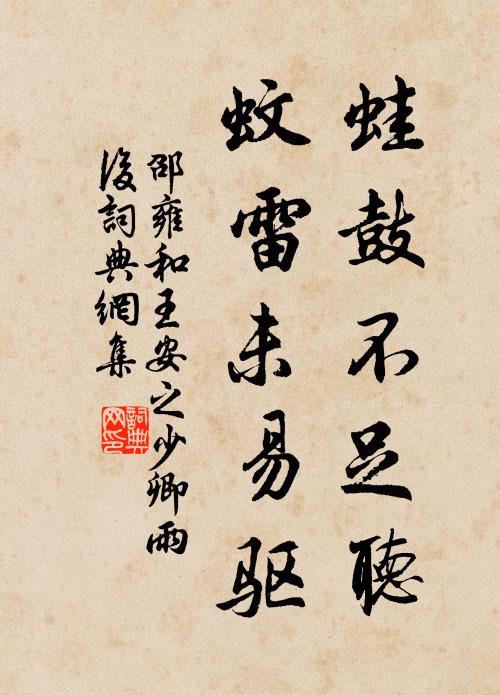 蛙鼓不足聽
蚊雷未易驱
邵雍和王安之少卿雨
後詞典網集
詞典
网印